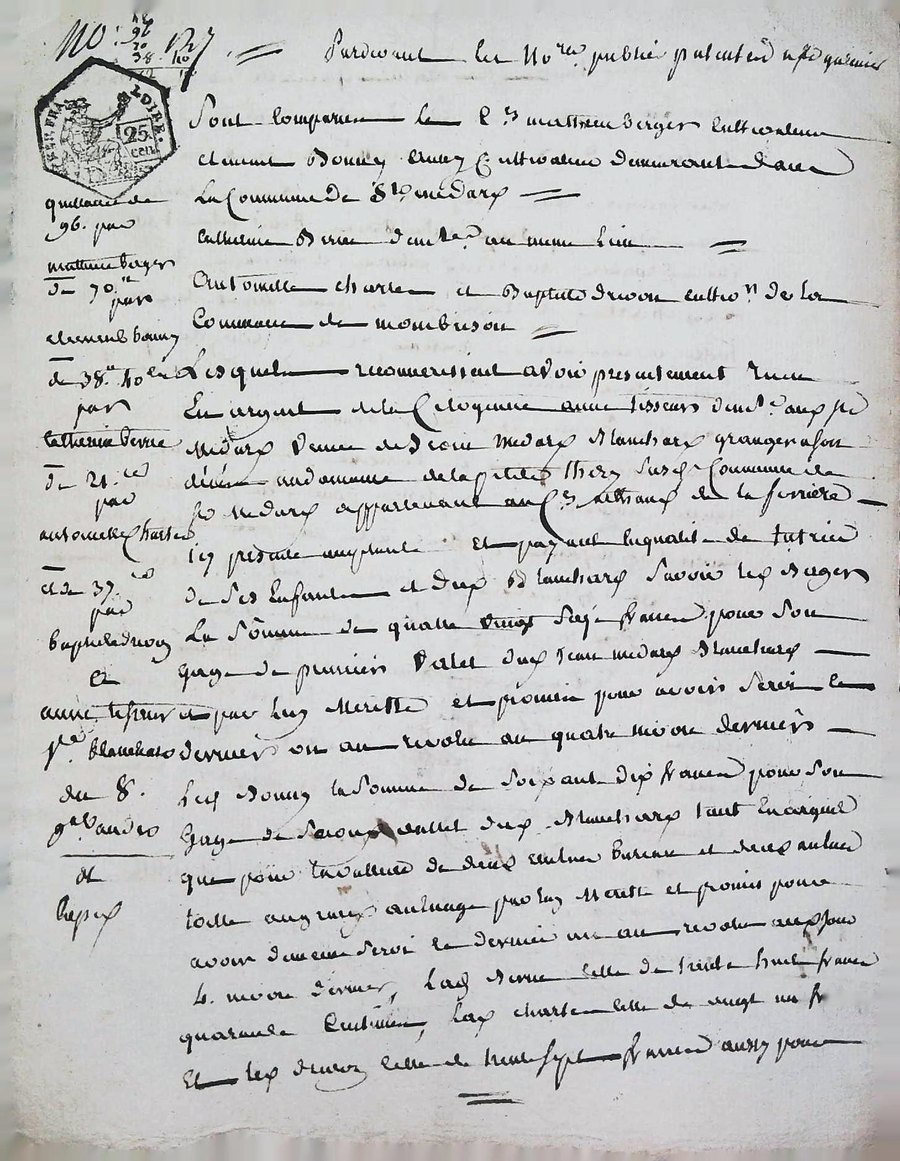 No. 127.
48
96
70
38. 40
REP. FRA
LOIRE.
25
cen
Pardevant les Nores publics patentés
Sont Comparus le Cns mathieu Berger Cultivateur
Clement Bonny Cultivateur demeurant dans
La Commune de St medard
Catherine Berne demte au meme Lieu
Antoinette charles et Baptiste drivon cultivn de la
Commune de mombrison
Lesquels reconnoissent avoir presentement recu
En argent de la Citoyenne anne tisseurs demte aux St
Medard Veuve de Jean Medard Blanchard granger a son
décés au domaine de la Commune de
St Medard appartenant au Cn de la ferriere
icy presente acceptante et payant En qualité de tutrice
de Ses Enfants et dud Blanchard Savoir led Berger
La Sômme de quatre vingt Seize francs pour Son
gage de premier Valet dud Jean medard Blanchard
et par luy Merittée et promis pour avoir Servi le
dernier an au revolu au quatre mars dernier
Led Bonny la Somme de Soixante dix francs pour Son
Gage de Second vallet dud Blanchard tant En argent
que pour la valleur de deux aulnes Bureau et deux aulnes
toille par luy Meritté et promis pour
avoir de meme Servi le dernier an au revolu aud jour
4. mars dernier, Lad Berne Celle de trente huit francs
quarante Centimes, Lad charles celle de vingt un fr
Et led drivon Celle de trente sept francs aussy pour
quittance de
96. par
mathieu berger
De 70. tt
par
clement bonny
de 38. tt 40
par
Catherine berne
De 21.
par
antoinette Charles
et de 37.
par
baptiste drivon
Et
anne tisseur
Ve. blanchard
du 8.
9bre an 10
et
Exped